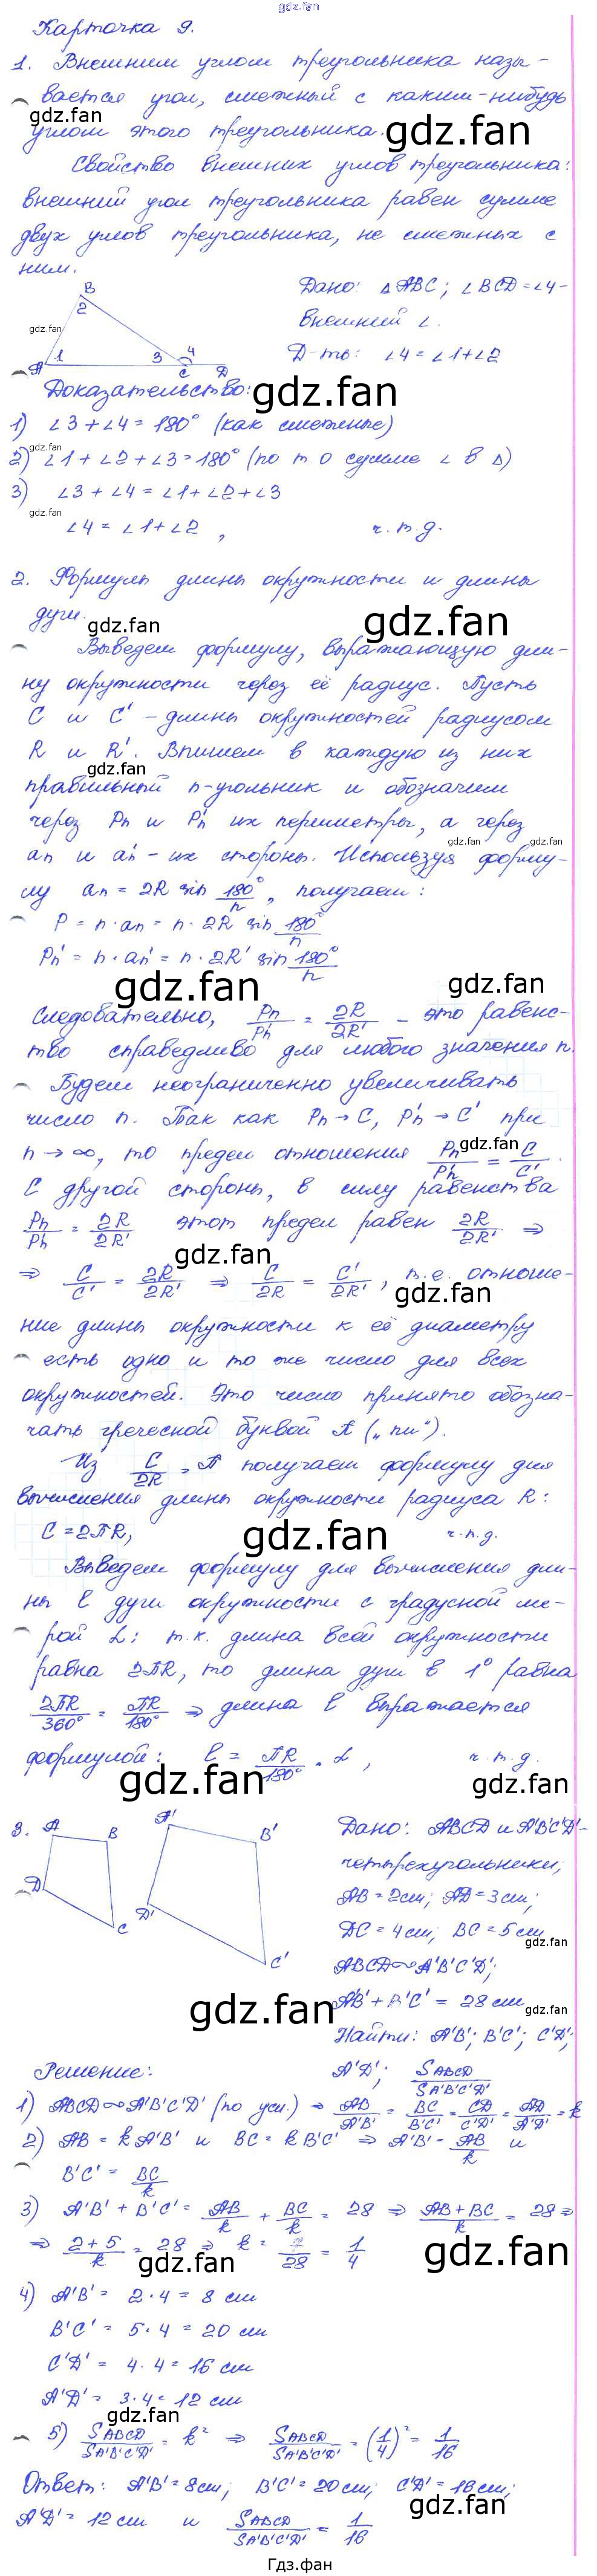 gdz.fan
Карточка 9.
1. Внешним углом треугольника назы-
вается угол, смежный с каким-нибудь
gdz.fan
углом этого треугольника.
gdz.fan
Свойство внешних углов треугольника:
внешний угол треугольника равен сумме
двух углов треугольника, не смежных с
ним.
B
2
gdz.fan
A 1 3 4 C D
Дано: △ABC; ∠BCD=∠4-
внешний ∠.
Д-ть: ∠4=∠1+∠2
Доказательство:
gdz.fan
1) ∠3+∠4=180° (как смежные)
gdz.fan
2) ∠1+∠2+∠3=180° (по т. о сумме ∠ в △)
3) ∠3+∠4=∠1+∠2+∠3
gdz.fan
∠4=∠1+∠2, ч.т.д.
2. Формулы длины окружности и длины
дуги.
gdz.fan
gdz.fan
Выведем формулу, выражающую дли-
ну окружности через её радиус. Пусть
C и C' - длины окружностей радиусом
R и R'. Впишем в каждую из них
gdz.fan
правильный n-угольник и обозначим
через Pn и P'n их периметры, а через
gdz.fan gdz.fan
an и an' - их стороны. Используя форму-
лу an = 2R sin 180°/n, получаем:
P = n·an = n·2R sin 180°/n
Pn' = n·an' = n·2R' sin 180°/n
gdz.fan
gdz.fan
Следовательно, Pn/Pn' = 2R/2R' - это равенс-
тво справедливо для любого значения n.
Будем неограниченно увеличивать
число n. Так как Pn→C, P'n→C' при
gdz.fan
n→∞, то предел отношения Pn/P'n = C/C'.
С другой стороны, в силу равенства
Pn/Pn' = 2R/2R' этот предел равен 2R/2R' ⇒
gdz.fan
⇒ C/C' = 2R/2R' ⇒ C/2R = C'/2R', т.е. отноше-
gdz.fan
ние длины окружности к её диаметру
есть одно и то же число для всех
окружностей. Это число принято обозна-
чать греческой буквой π („пи“).
Из C/2R = π получаем формулу для
вычисления длины окружности радиуса R:
C=2πR, ч.т.д.
gdz.fan
Выведем формулу для вычисления дли-
ны l дуги окружности с градусной ме-
рой α: т.к. длина всей окружности
равна 2πR, то длина дуги в 1° равна
2πR/360° = πR/180° ⇒ длина l выражается
формулой: l = πR/180° · α, ч.т.д.
gdz.fan
gdz.fan
3. A B D C
A' B' D' C'
Дано: ABCD и A'B'C'D'-
четырехугольники;
AB=2см; AD=3см;
DC=4см; BC=5см
gdz.fan
ABCD∼A'B'C'D';
A'B'+B'C' = 28см
gdz.fan
gdz.fan
Найти: A'B'; B'C'; C'D';
A'D'; SABCD/SA'B'C'D'
Решение:
1) ABCD∼A'B'C'D' (по усл.) ⇒ AB/A'B' = BC/B'C' = CD/C'D' = AD/A'D' = k
2) AB = kA'B' и BC = kB'C' ⇒ A'B' = AB/k и
B'C' = BC/k
3) A'B'+B'C' = AB/k + BC/k = 28 ⇒ AB+BC/k = 28 ⇒
⇒ 2+5/k = 28 ⇒ k = 7/28 = 1/4
gdz.fan
gdz.fan
4) A'B' = 2·4 = 8 см
B'C' = 5·4 = 20 см
C'D' = 4·4 = 16 см
A'D' = 3·4 = 12 см
gdz.fan
5) SABCD/SA'B'C'D' = k² ⇒ SABCD/SA'B'C'D' = (1/4)² = 1/16
Ответ: A'B'=8см; B'C'=20см; C'D'=16см;
gdz.fan
A'D'=12см и SABCD/SA'B'C'D' = 1/16
Гдз.фан